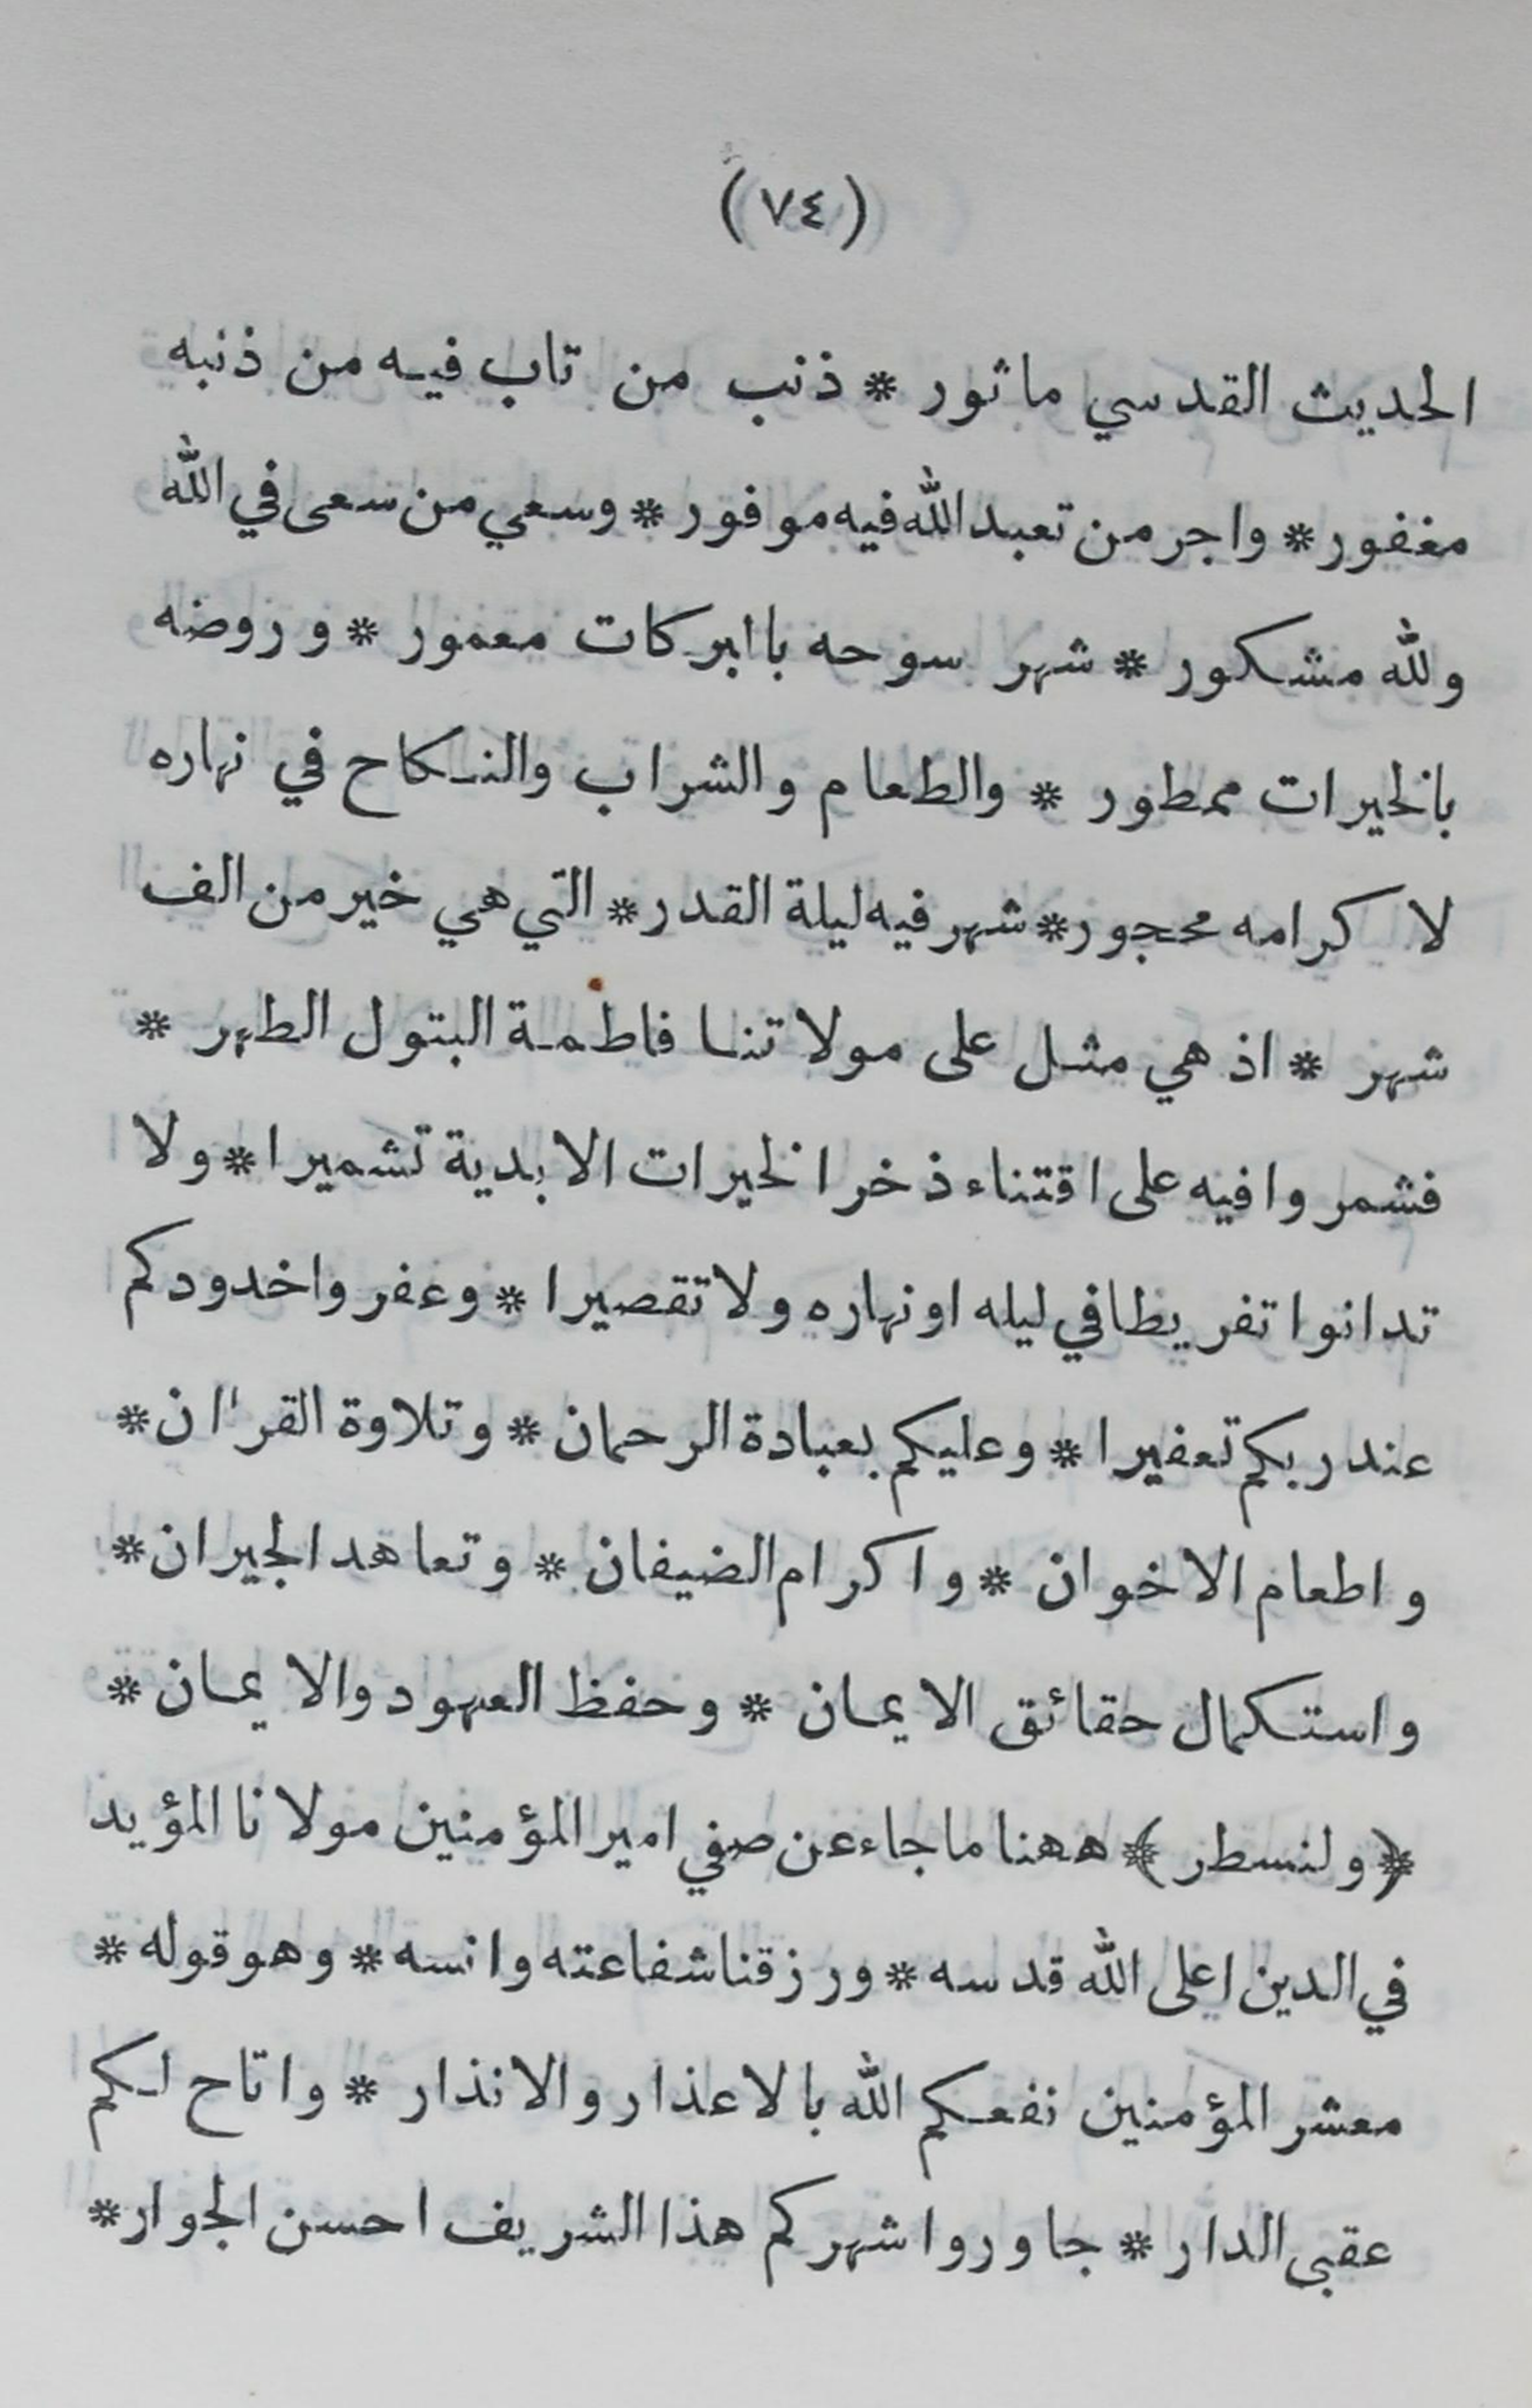 (٧٤)
الحديث القدسي ماثور * ذنب من تاب فيه من ذنبه
مغفور * واجر من تعبد الله فيه موفور * وسعي من سعى في الله
ولله مشكور * شهر سوحه باابركات معمور * وروضه
بالخيرات ممطور * والطعام والشراب والنكاح في نهاره
لا كرامه محجور * شهر فيه ليلة القدر * التي هي خير من الف
شهر * اذ هي مثل على مولاتنا فاطمة البتول الطهر *
فشمروا فيه على اقتناء ذخر الخيرات الابدية تشميرا * ولا
تدانوا تفريطا في ليله او نهاره ولا تقصيرا * وعفروا خدودكم
عند ربكم تعفيرا * وعليكم بعبادة الرحمان * وتلاوة القراان *
واطعام الاخوان * واكرام الضيفان * وتعاهد الجيران *
واستكمال حقائق الايمان * وحفظ العهود والايمان *
﴿ ولنسطر ﴾ ههنا ما جاء عن صفي امير المؤمنين مولانا المؤيد
في الدين اعلى الله قدسه * ورزقنا شفاعته وانسه * وهو قوله *
معشر المؤمنين نفعكم الله بالاعذار والانذار * واتاح لكم
عقبى الدار * جاوروا شهركم هذا الشريف احسن الجوار *